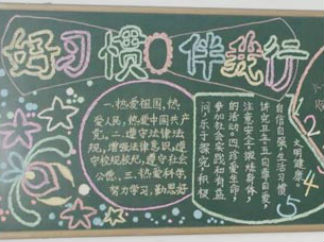 好习惯伴我行
一.热爱祖国,热
爱人民,热爱中国共产
党。二.遵守法律法
规,增强法律意识,遵
守校规校纪,遵守社会
公德。三.热爱科学,
努力学习,勤思好
问,乐于探究,积极
参加社会实践和有益
的活动。四.珍爱生命,
注意安全,锻炼身体,
讲究卫生。五.自尊自爱,
自信自强,生活习惯
文明健康。
2
4
5